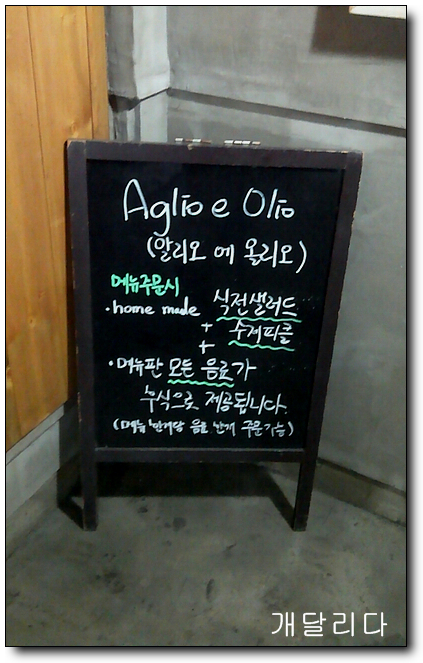 Aglio e Olio
(알리오 에 올리오)
메뉴주문시
·home made 식전샐러드
+ 수제피클
+
·메뉴판 모든 음료가
후식으로 제공됩니다.
(메뉴 한개당 음료 한개 주문가능)
개달리다